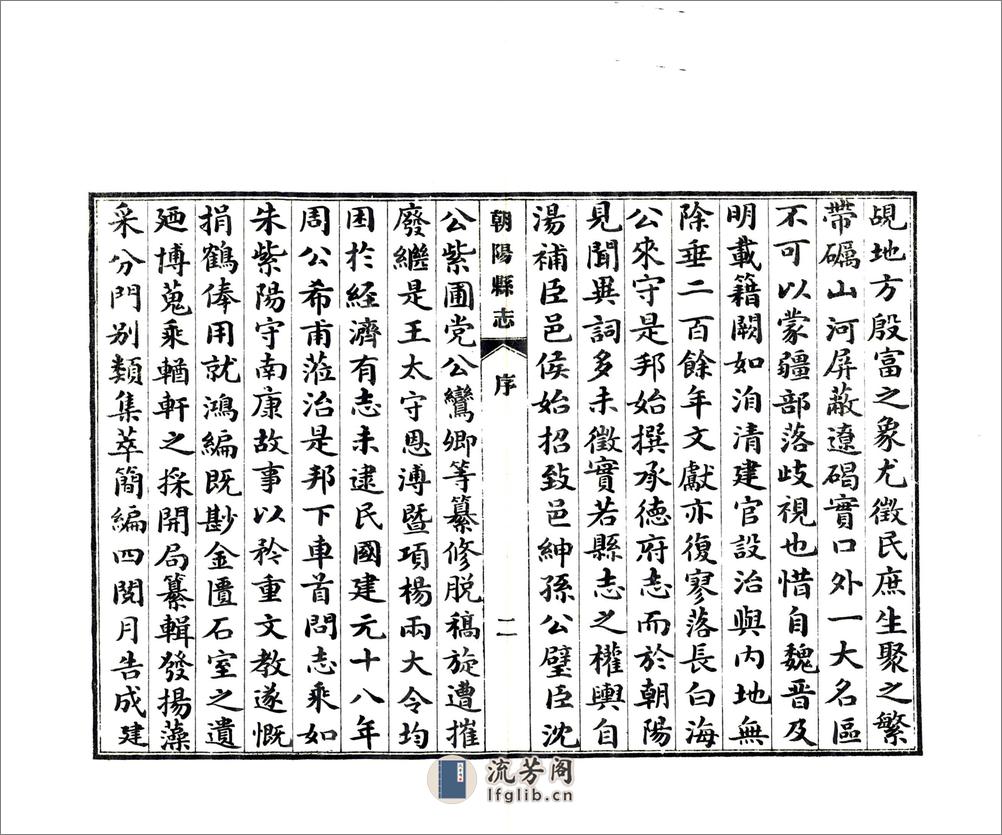 觇地方殷富之象尤徵民庶生聚之繁
帶礪山河屏蔽遼碣實口外一大名區
不可以蒙疆部落歧視也惜自魏晋及
明載籍闕如洎清建官設治與內地無
除垂二百餘年文獻亦復寥落長白海
公來守是邦始撰承德府志而於朝陽
見聞異詞多未徵實若縣志之權輿自
湯補臣邑侯始招致邑紳孫公璧臣沈
朝陽縣志
序
二
公紫圃党公鸞卿等纂修脱稿旋遭摧
廢繼是王太守恩溥暨項楊兩大令均
困於經濟有志未逮民國建元十八年
周公希甫蒞治是邦下車首問志乘如
朱紫陽守南康故事以矜重文教遂慨
捐鶴俸用就鴻編既尠金匱石室之遺
廼博蒐乘輶軒之採開局纂輯發揚藻
采分門别類集萃簡編四閱月告成建
流芳阁
lfglib.cn